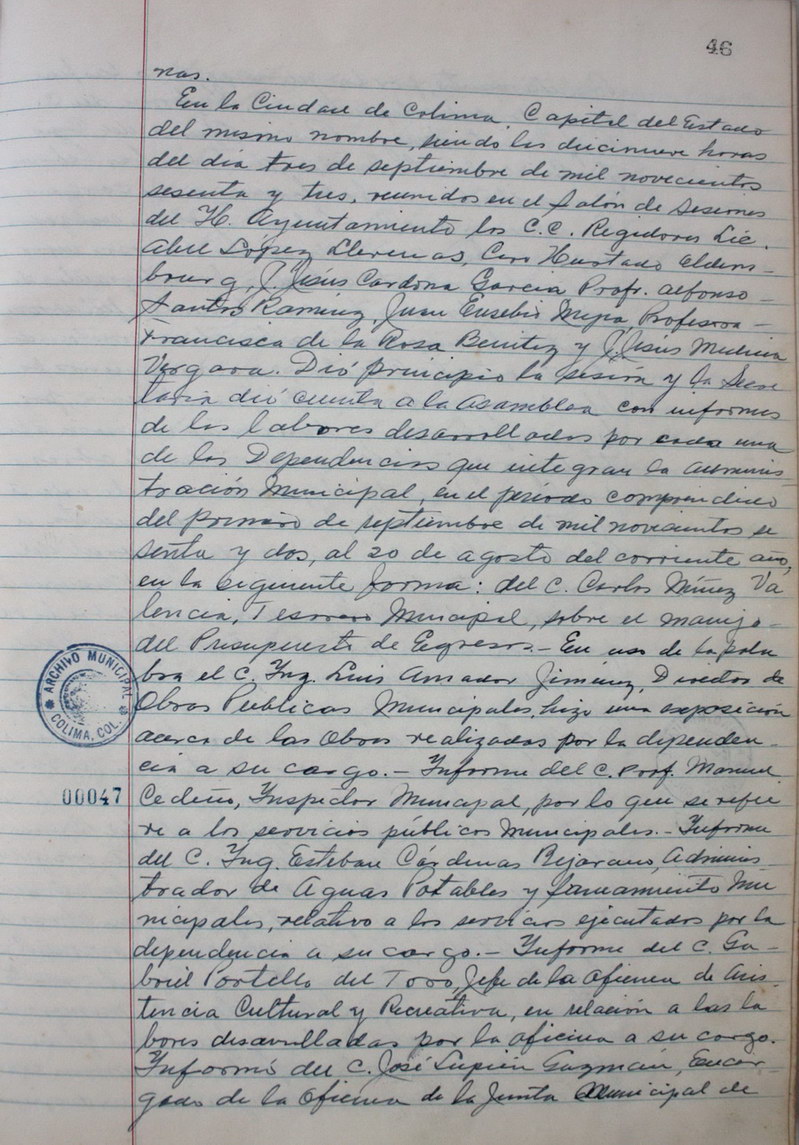 46
nas.
En la Ciudad de Colima, Capital del Estado
del mismo nombre, siendo las diecinueve horas
del día tres de septiembre de mil novecientos
sesenta y tres, reunidos en el Salón de Sesiones
del H. Ayuntamiento los C.C. Regidores Lic.
Abel López Llerenas, Ciro Hurtado Eldens-
bourg, J. Jesús Cardona García Profr. Alfonso
Santos Ramírez, Juan Eusebio Mejía Profesora
Francisca de la Rosa Benítez y J. Jesús Medina
Vergara. Dió principio la sesión y la Secre
taria dió cuenta a la Asamblea con informes
de las labores desarrolladas por cada una
de las Dependencias que integran la adminis-
tración Municipal, en el período comprendido
del primero de septiembre de mil novecientos se
senta y dos, al 20 de agosto del corriente año,
en la siguiente forma: del C. Carlos Núñez Va
lencia, Tesorero Municipal, sobre el manejo
del Presupuesto de Egresos.- En uso de la pala
bra el C. Ing. Luis Amador Jiménez, Director de
Obras Públicas Municipales, hizo una exposición
acerca de las Obras realizadas por la dependen-
cia a su cargo.- Informe del C. Prof. Manuel
Cedeño, Inspector Municipal, por lo que se refie
re a los servicios públicos Municipales.- Informe
del C. Ing. Esteban Cárdenas Bejarano, Adminis
trador de Aguas Potables y Saneamiento Mu
nicipales, relativo a los servicios ejecutados por la
dependencia a su cargo.- Informe del C. Ga-
briel Portillo del Toro, Jefe de la Oficina de Asis
tencia Cultural y Recreativa, en relación a las la
bores desarrolladas por la oficina a su cargo.
Informó del C. José Lupián Guzmán, Encar
gado de la Oficina de la Junta Municipal de
ARCHIVO MUNICIPAL
COLIMA, COL.
00047